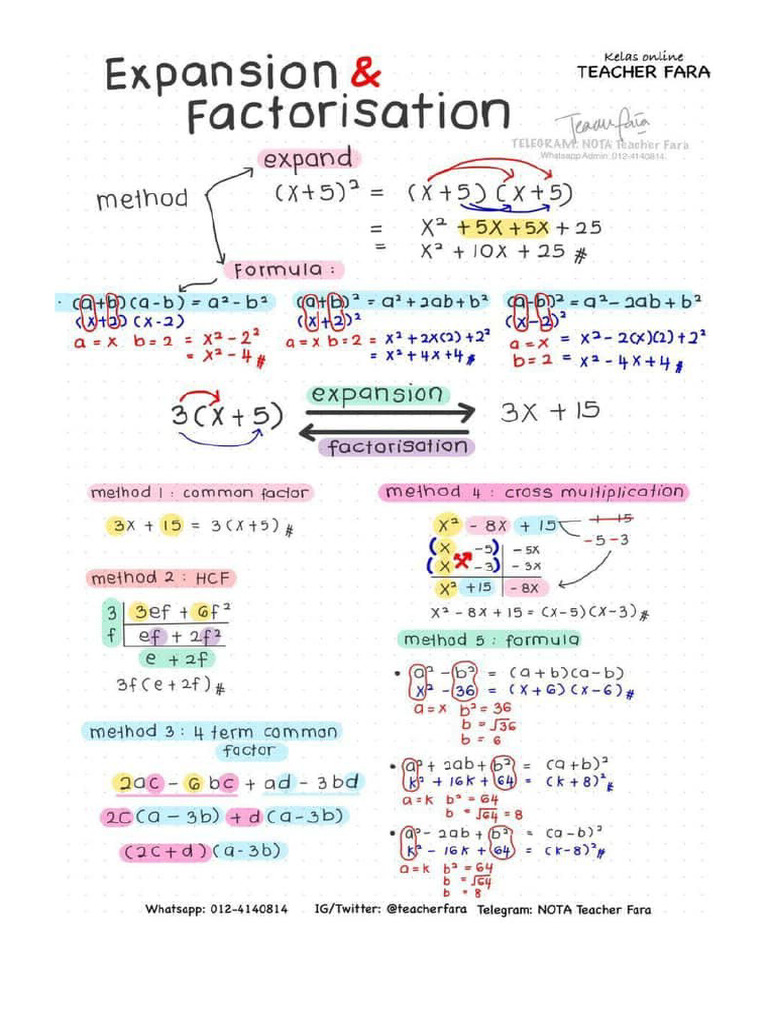 Kelas online
TEACHER FARA
Expansion &
Factorisation
Teacher Fara
TELEGRAM: NOTA Teacher Fara
Whatsapp Admin: 012-4140814
expand
method
(x+5)² = (x+5)(x+5)
= x² +5x+5x +25
= x² + 10x + 25 #
Formula :
· (a+b)(a-b) = a² - b²
(x+2)(x-2)
a = x b = 2 = x² - 2²
= x² - 4 #
(a+b)² = a² + 2ab + b²
(x+2)²
a = x b = 2 = x² + 2x(2) + 2²
= x² + 4x + 4 #
(a-b)² = a² - 2ab + b²
(x-2)²
a = x = x² - 2(x)(2) + 2²
b = 2 = x² - 4x + 4 #
expansion
3(x+5) 3x + 15
factorisation
method 1 : common factor
3x + 15 = 3(x+5) #
method 2 : HCF
3 3ef + 6f²
f ef + 2f²
e + 2f
3f(e + 2f) #
method 3 : 4 term common
factor
2ac - 6bc + ad - 3bd
2c(a - 3b) + d(a-3b)
(2c+d)(a-3b)
method 4 : cross multiplication
x² - 8x + 15 + 15
(x -5) -5x -5 -3
(x -3) -3x
x² +15 -8x
x² - 8x + 15 = (x-5)(x-3) #
method 5 : formula
• a² - b² = (a+b)(a-b)
x² - 36 = (x+6)(x-6) #
a = x b² = 36
b = √36
b = 6
• a² + 2ab + b² = (a+b)²
k² + 16k + 64 = (k+8)² #
a = k b² = 64
b = √64 = 8
• a² - 2ab + b² = (a-b)²
k² - 16k + 64 = (k-8)² #
a = k b² = 64
b = √64
b = 8
Whatsapp: 012-4140814 IG/Twitter: @teacherfara Telegram: NOTA Teacher Fara